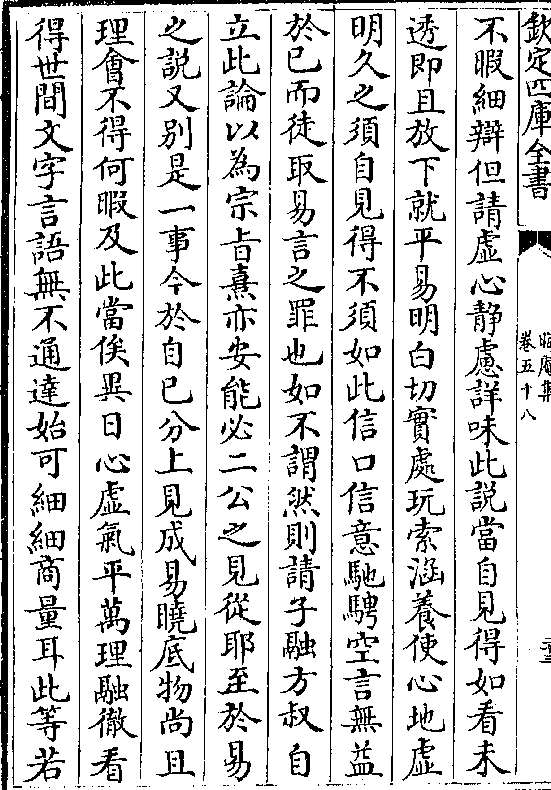 欽定四庫全書
晦庵集
卷五十八
不暇細辯但請虛心靜慮詳味此說當自見得如看未
透即且放下就平易明白切實處玩索涵養使心地虛
明久之須自見得不須如此信口信意馳騁空言無益
於已而徒取易言之罪也如不謂然則請子融方叔自
立此論以為宗㫖熹亦安能必二公之見從耶至於易
之說又别是一事今於自已分上見成易曉底物尚且
理㑹不得何暇及此當俟異日心虛氣平萬理融徹看
得世間文字言語無不通達始可細細商量耳此等若